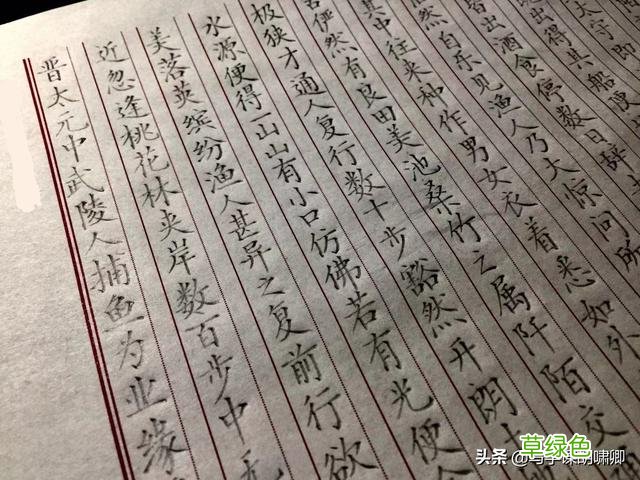 晋太元中武陵人捕鱼为业缘
近忽逢桃花林夹岸数百步中无
美落英缤纷渔人甚异之复前行欲
水源便得一山山有小口仿佛若有光便
极狭才通人复行数十步豁然开朗土
俨然有良田美池桑竹之属阡陌交
其中往来种作男女衣着悉如外
然自乐见渔人乃大惊问所
皆出酒食停数日辞去
出得其船便
太守即
草绿色
头条